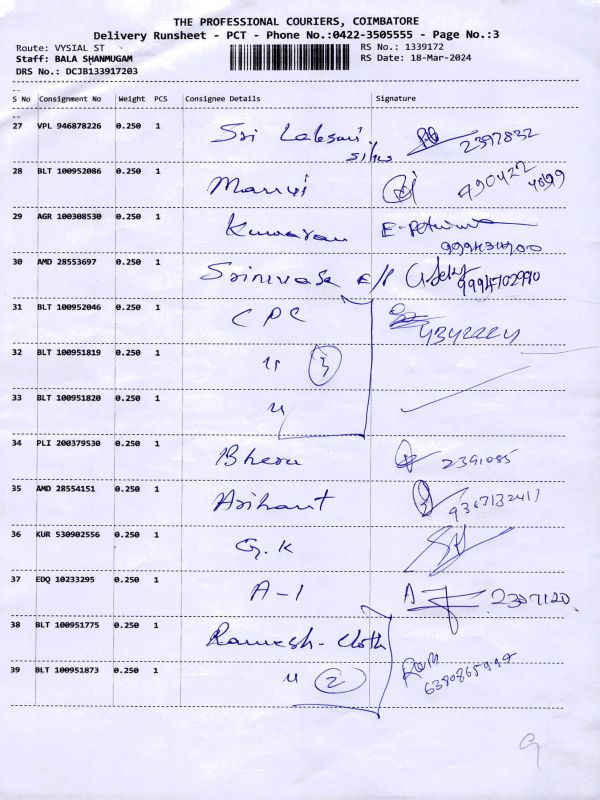 THE PROFESSIONAL COURIERS, COIMBATORE
Delivery Runsheet - PCT - Phone No.:0422-3505555 - Page No.:3
Route: VYSIAL ST RS No.: 1339172
Staff: BALA SHANMUGAM RS Date: 18-Mar-2024
DRS No.: DCJB133917203
S No Consignment No Weight PCS Consignee Details Signature
27 VPL 946878226 0.250 1 Sri 2397832
28 BLT 100952086 0.250 1
29 AGR 100308530 0.250 1 Kumaran
30 AMD 28553697 0.250 1 Srinivasa
31 BLT 100952046 0.250 1 CPC
32 BLT 100951819 0.250 1 " 3
33 BLT 100951820 0.250 1 "
34 PLI 200379530 0.250 1 2391085
35 AMD 28554151 0.250 1 Arihant 9367132411
36 KUR 530902556 0.250 1 G.K
37 EDQ 10233295 0.250 1 A-1 2397120
38 BLT 100951775 0.250 1 Ramesh-Cloth
39 BLT 100951873 0.250 1 " 2